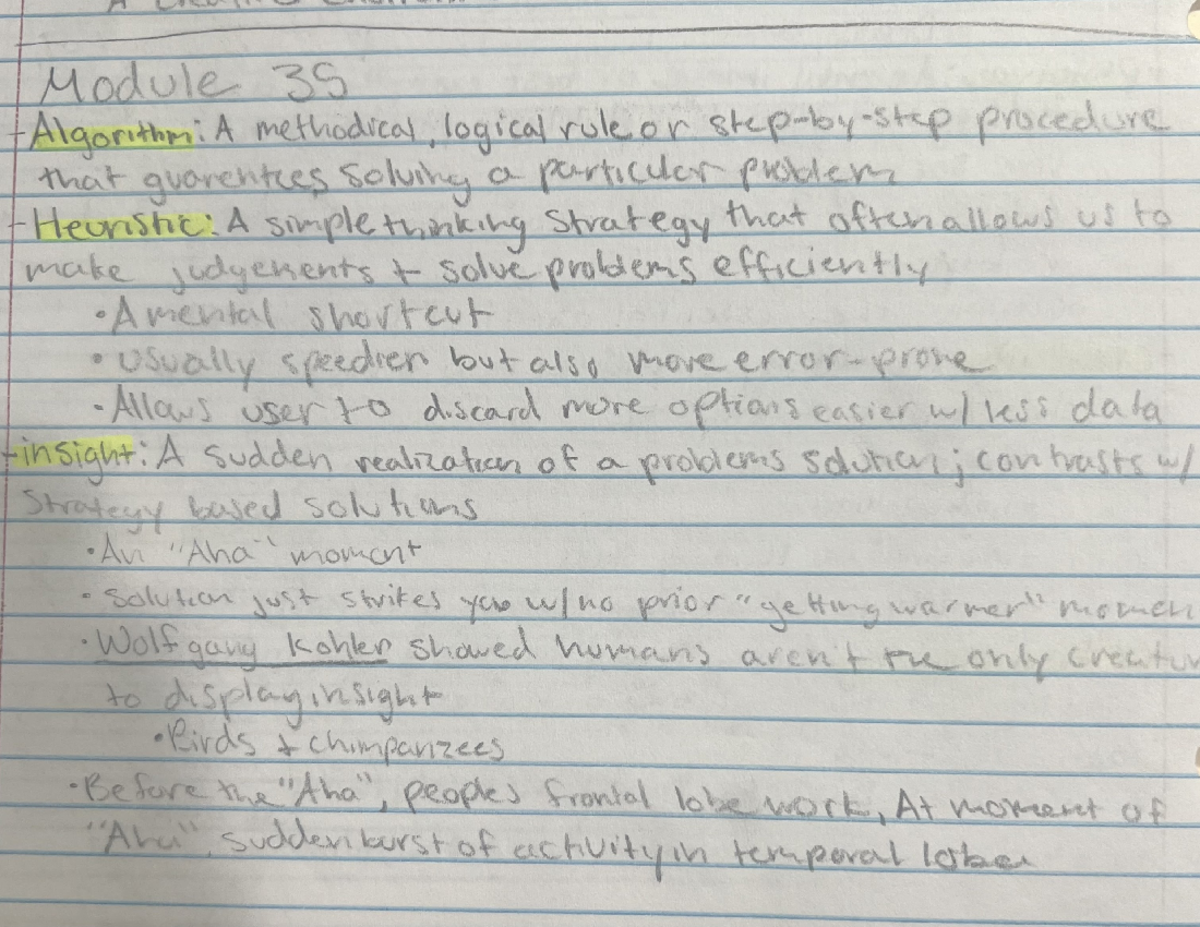 Module 35
-Algorithm: A methodical, logical rule or step-by-step procedure
that guarentees solving a particular problem
-Heuristic: A simple thinking strategy that often allows us to
make judgements + solve problems efficiently
• A mental shortcut
• Usually speedier but also more error-prone
• Allows user to discard more options easier w/ less data
-insight: A sudden realization of a problems solution; contrasts w/
Strategy based solutions
• An "Aha" moment
• Solution just strikes you w/ no prior "getting warmer" momen
• Wolfgang Kohler showed humans aren't the only creatur
to display insight
• Birds + chimpanzees
• Before the "Aha", peoples frontal lobe work, At moment of
"Aha", sudden burst of activity in temporal lobe